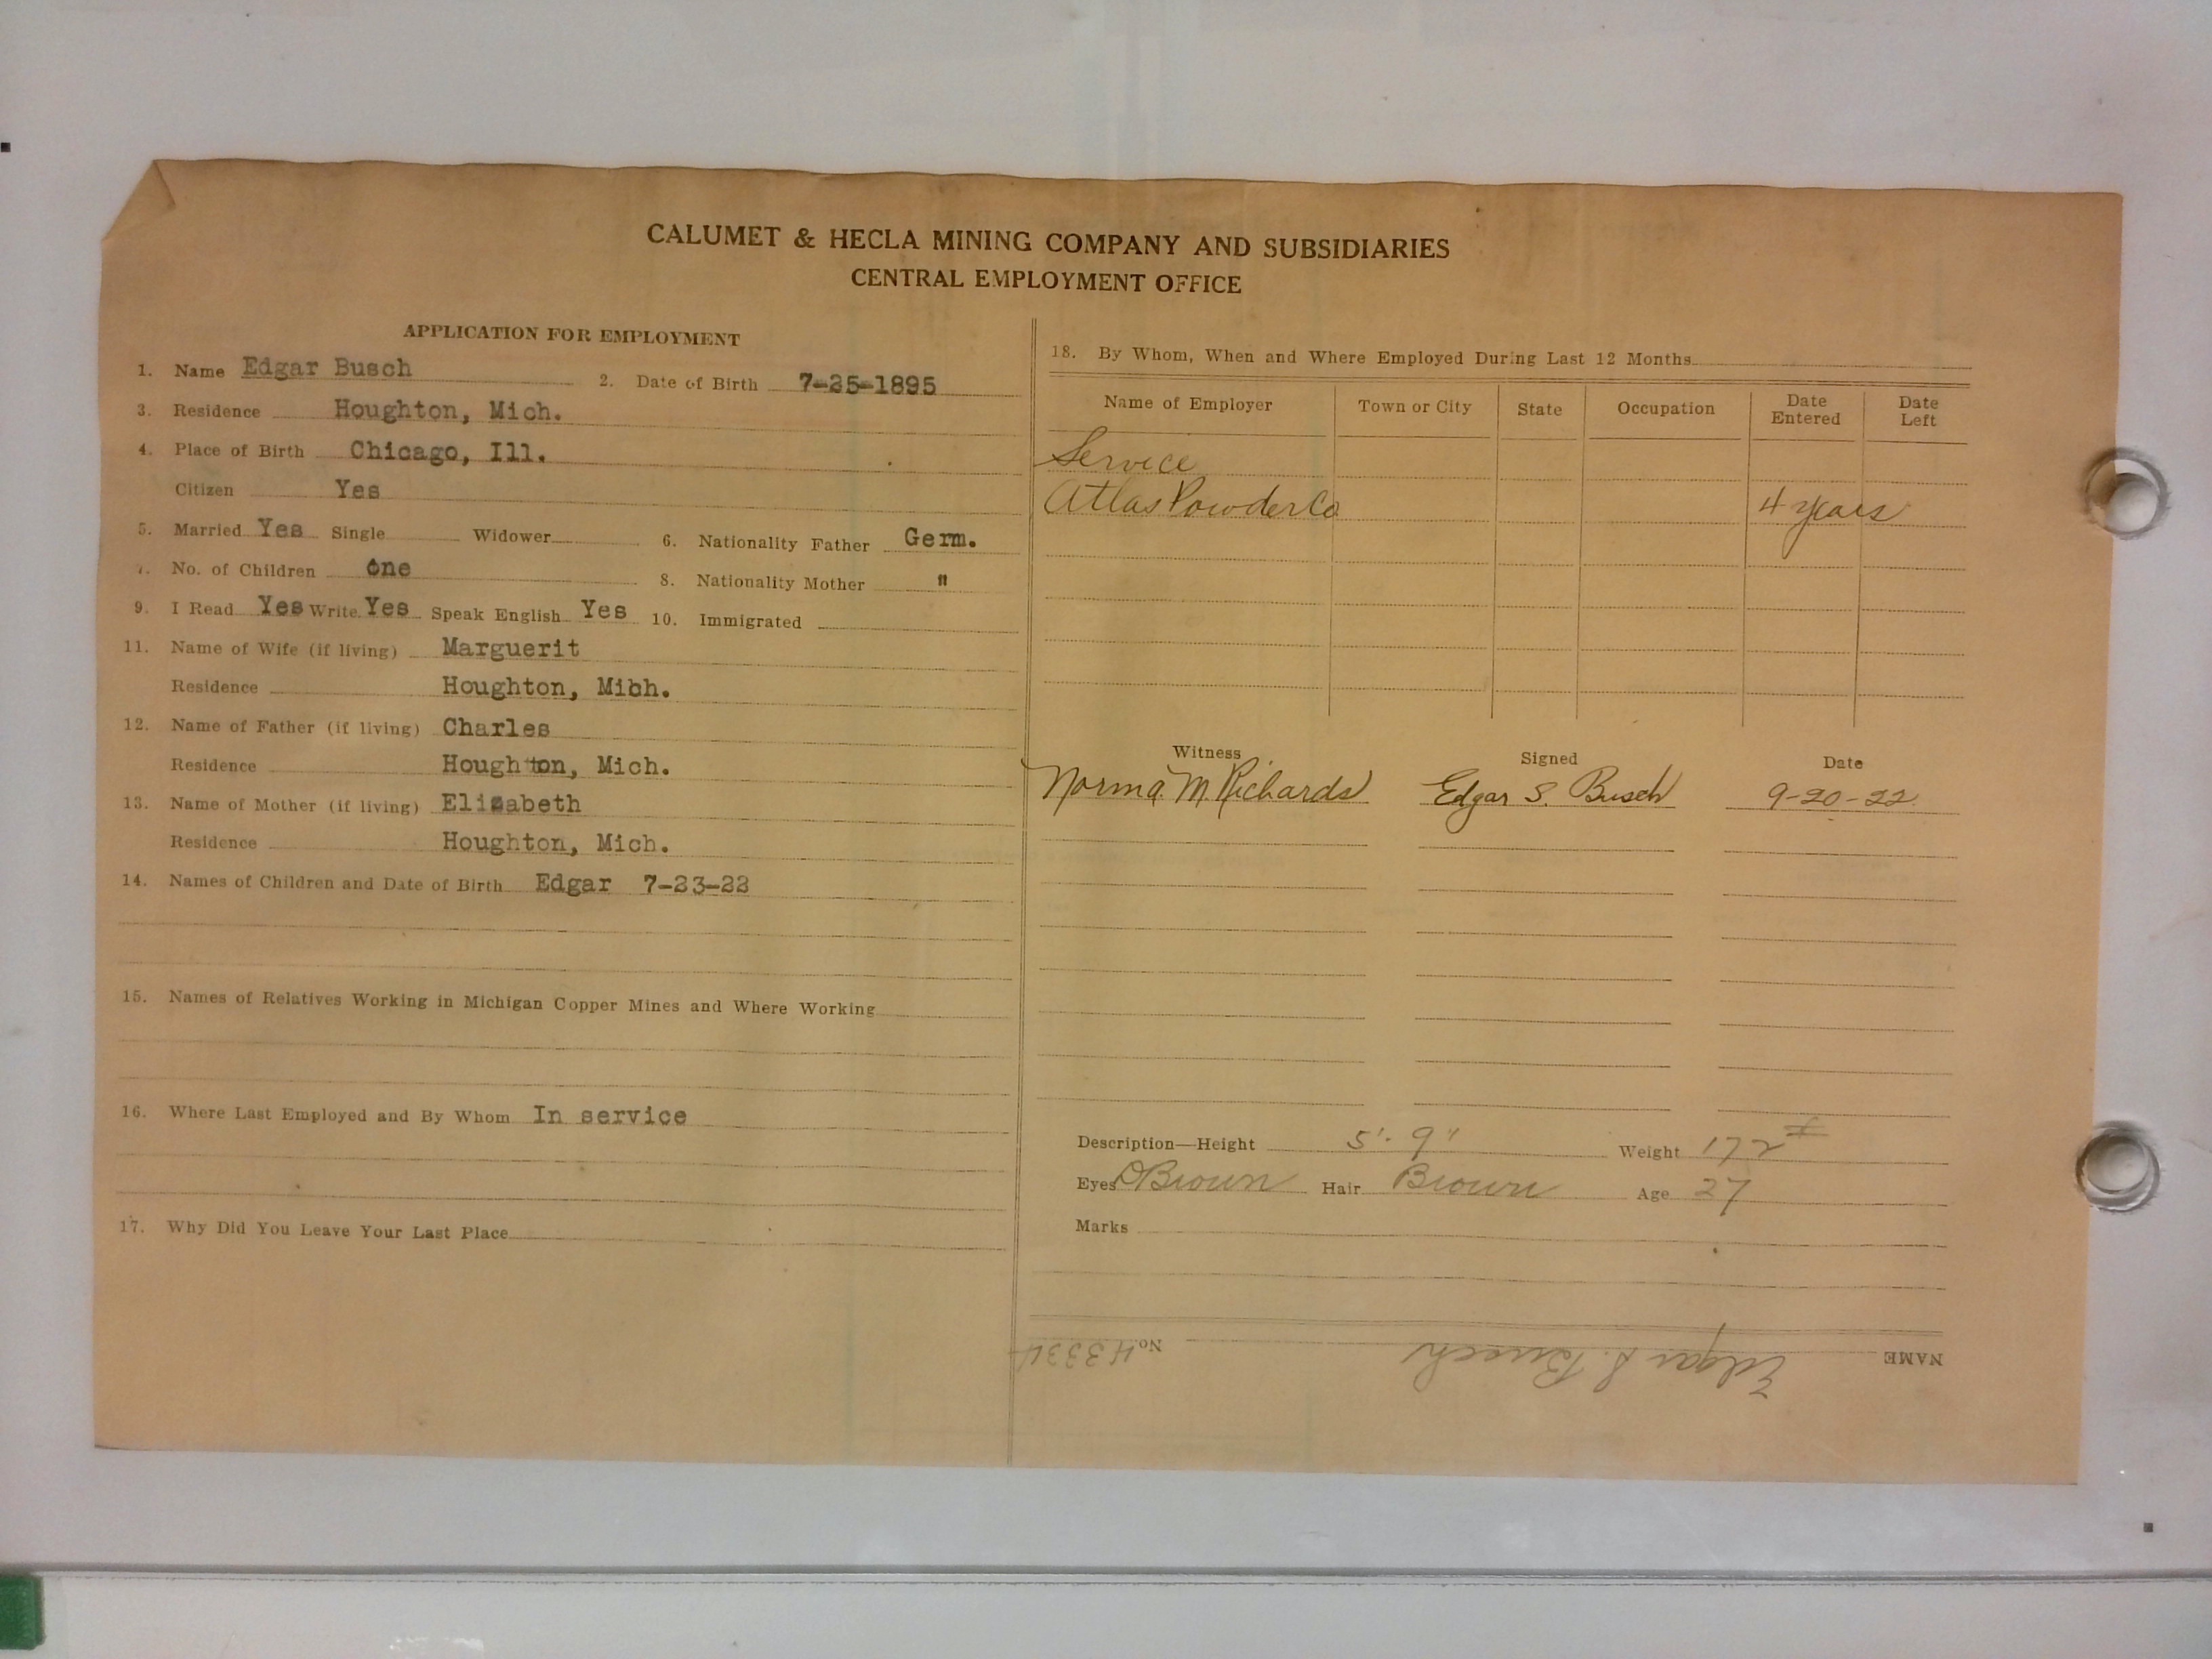 CALUMET & HECLA MINING COMPANY AND SUBSIDIARIES
CENTRAL EMPLOYMENT OFFICE
APPLICATION FOR EMPLOYMENT
1. Name Edgar Busch 2. Date of Birth 7-25-1895
3. Residence Houghton, Mich.
4. Place of Birth Chicago, Ill.
Citizen Yes
5. Married Yes Single Widower 6. Nationality Father Germ.
7. No. of Children One 8. Nationality Mother "
9. I Read Yes Write Yes Speak English Yes 10. Immigrated
11. Name of Wife (if living) Marguerit
Residence Houghton, Mibh.
12. Name of Father (if living) Charles
Residence Houghton, Mich.
13. Name of Mother (if living) Elizabeth
Residence Houghton, Mich.
14. Names of Children and Date of Birth Edgar 7-23-22
15. Names of Relatives Working in Michigan Copper Mines and Where Working
16. Where Last Employed and By Whom In service
17. Why Did You Leave Your Last Place
18. By Whom, When and Where Employed During Last 12 Months
Name of Employer Town or City State Occupation Date Entered Date Left
Service
Atlas Powder Co 4 years
Witness Signed Date
Norma M Richards Edgar S. Busch 9-20-22
Description—Height 5'. 9" Weight 172#
Eyes DBrown Hair Brown Age 27
Marks
NAME Edgar S. Busch No.